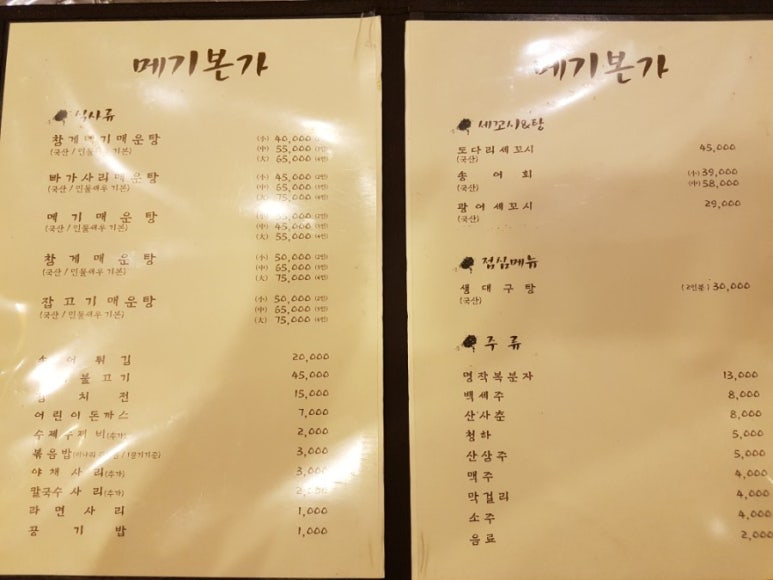 메기본가
식사류
참게메기매운탕 (小) 40,000 (2인)
(국산 / 민물새우 기본) (中) 55,000 (3인)
(大) 65,000 (4인)
빠가사리매운탕 (小) 45,000 (2인)
(국산 / 민물새우 기본) (中) 65,000 (3인)
(大) 75,000 (4인)
메기매운탕 (小) 35,000 (2인)
(국산 / 민물새우 기본) (中) 45,000 (3인)
(大) 55,000 (4인)
참게매운탕 (小) 50,000 (2인)
(국산 / 민물새우 기본) (中) 65,000 (3인)
(大) 75,000 (4인)
잡고기매운탕 (小) 50,000 (2인)
(국산 / 민물새우 기본) (中) 65,000 (3인)
(大) 75,000 (4인)
송어튀김 20,000
불고기 45,000
전 15,000
어린이돈까스 7,000
수제수제비(추가) 2,000
볶음밥 3,000
야채사리(추가) 3,000
칼국수사리(추가) 2,000
라면사리 1,000
공기밥 1,000
메기본가
세꼬시&탕
도다리세꼬시 45,000
(국산)
송어회 (小) 39,000
(국산) (中) 58,000
광어세꼬시 29,000
(국산)
점심메뉴
생대구탕 (2인분) 30,000
(국산)
주류
명작복분자 13,000
백세주 8,000
산사춘 8,000
청하 5,000
산삼주 5,000
맥주 4,000
막걸리 4,000
소주 4,000
음료 2,000